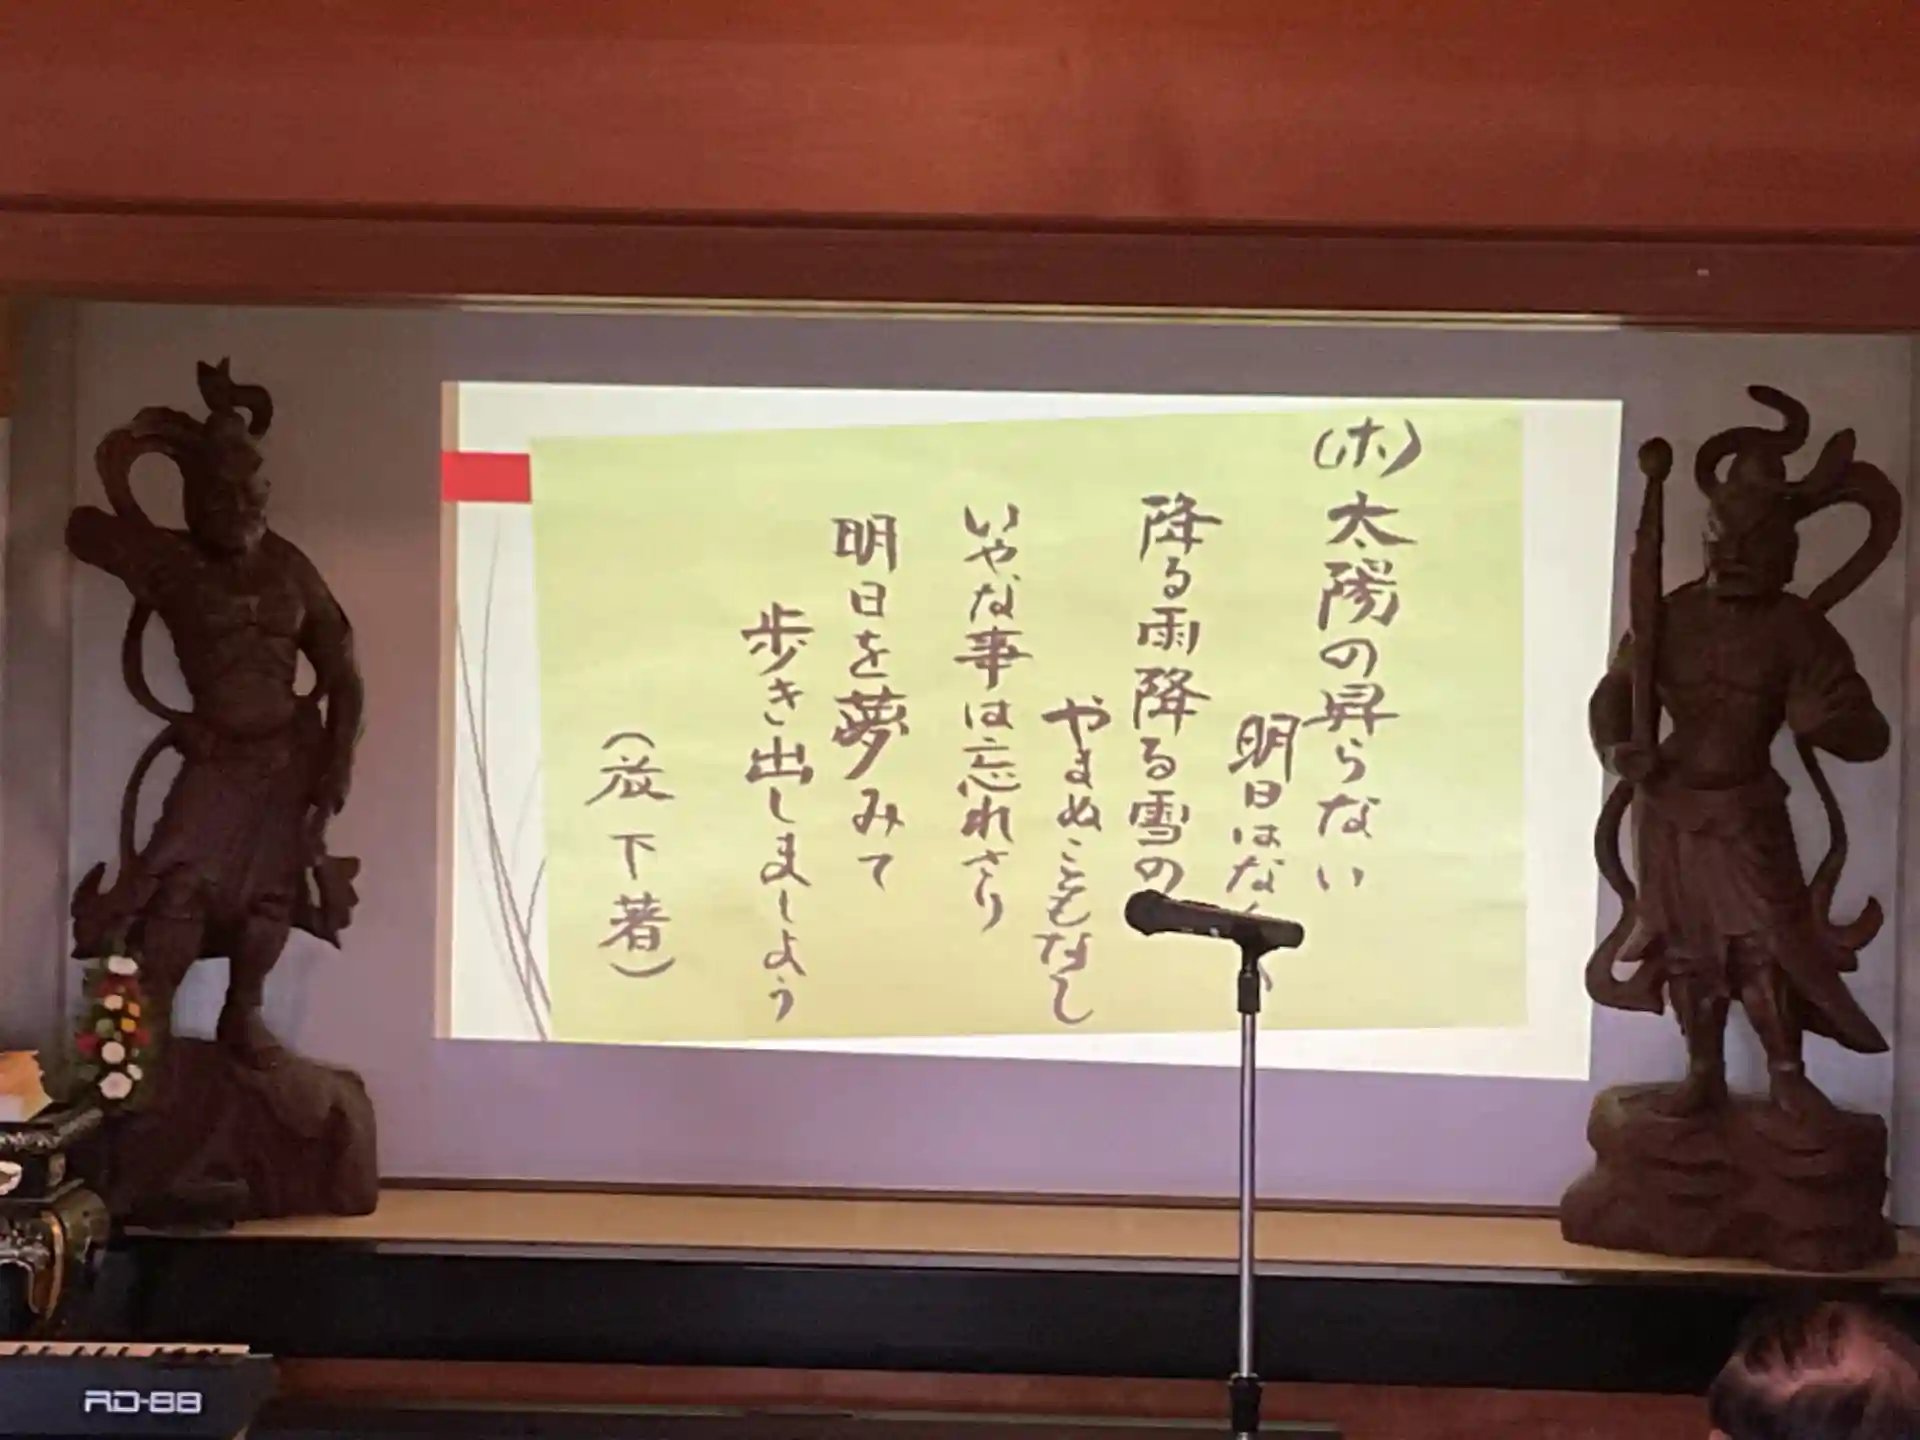 (ホ)太陽の昇らない
明日はな
降る雨降る雪の
やまぬこともなし
いやな事は忘れさり
明日を夢みて
歩き出しましょう
(放下著)
RD-88